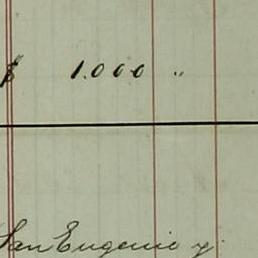 $ 1.000 "
San Eugenio y